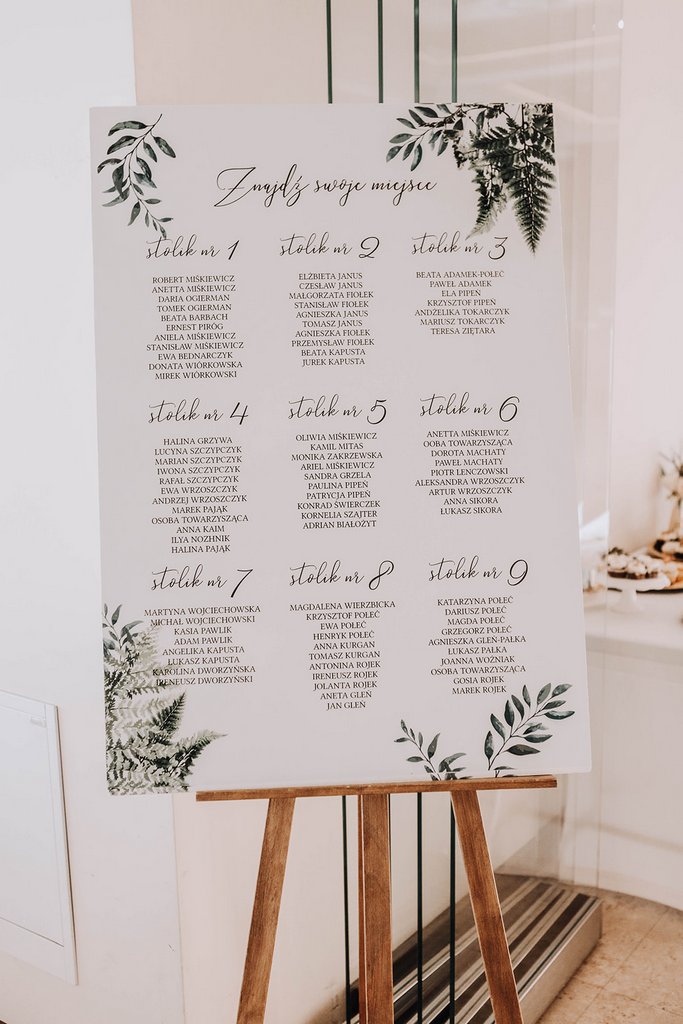 Znajdź swoje miejsce
stolik nr 1
ROBERT MIŚKIEWICZ
ANETTA MIŚKIEWICZ
DARIA OGIERMAN
TOMEK OGIERMAN
BEATA BARBACH
ERNEST PIRÓG
ANIELA MIŚKIEWICZ
STANISŁAW MIŚKIEWICZ
EWA BEDNARCZYK
DONATA WIÓRKOWSKA
MIREK WIÓRKOWSKI
stolik nr 2
ELŻBIETA JANUS
CZESŁAW JANUS
MAŁGORZATA FIOŁEK
STANISŁAW FIOŁEK
AGNIESZKA JANUS
TOMASZ JANUS
AGNIESZKA FIOŁEK
PRZEMYSŁAW FIOŁEK
BEATA KAPUSTA
JUREK KAPUSTA
stolik nr 3
BEATA ADAMEK-POŁEĆ
PAWEŁ ADAMEK
ELA PIPEŃ
KRZYSZTOF PIPEŃ
ANDŻELIKA TOKARCZYK
MARIUSZ TOKARCZYK
TERESA ZIĘTARA
stolik nr 4
HALINA GRZYWA
LUCYNA SZCZYPCZYK
MARIAN SZCZYPCZYK
IWONA SZCZYPCZYK
RAFAŁ SZCZYPCZYK
EWA WRZOSZCZYK
ANDRZEJ WRZOSZCZYK
MAREK PAJĄK
OSOBA TOWARZYSZĄCA
ANNA KAIM
ILYA NOZHNIK
HALINA PAJĄK
stolik nr 5
OLIWIA MIŚKIEWICZ
KAMIL MITAS
MONIKA ZAKRZEWSKA
ARIEL MIŚKIEWICZ
SANDRA GRZELA
PAULINA PIPEŃ
PATRYCJA PIPEŃ
KONRAD ŚWIERCZEK
KORNELIA SZAJTER
ADRIAN BIAŁOŻYT
stolik nr 6
ANETTA MIŚKIEWICZ
OOBA TOWARZYSZĄCA
DOROTA MACHATY
PAWEŁ MACHATY
PIOTR LENCZOWSKI
ALEKSANDRA WRZOSZCZYK
ARTUR WRZOSZCZYK
ANNA SIKORA
ŁUKASZ SIKORA
stolik nr 7
MARTYNA WOJCIECHOWSKA
MICHAŁ WOJCIECHOWSKI
KASIA PAWLIK
ADAM PAWLIK
ANGELIKA KAPUSTA
ŁUKASZ KAPUSTA
KAROLINA DWORZYŃSKA
IRENEUSZ DWORZYŃSKI
stolik nr 8
MAGDALENA WIERZBICKA
KRZYSZTOF POŁEĆ
EWA POŁEĆ
HENRYK POŁEĆ
ANNA KURGAN
TOMASZ KURGAN
ANTONINA ROJEK
IRENEUSZ ROJEK
JOLANTA ROJEK
ANETA GLEŃ
JAN GLEŃ
stolik nr 9
KATARZYNA POŁEĆ
DARIUSZ POŁEĆ
MAGDA POŁEĆ
GRZEGORZ POŁEĆ
AGNIESZKA GLEŃ-PAŁKA
ŁUKASZ PAŁKA
JOANNA WOŹNIAK
OSOBA TOWARZYSZĄCA
GOSIA ROJEK
MAREK ROJEK